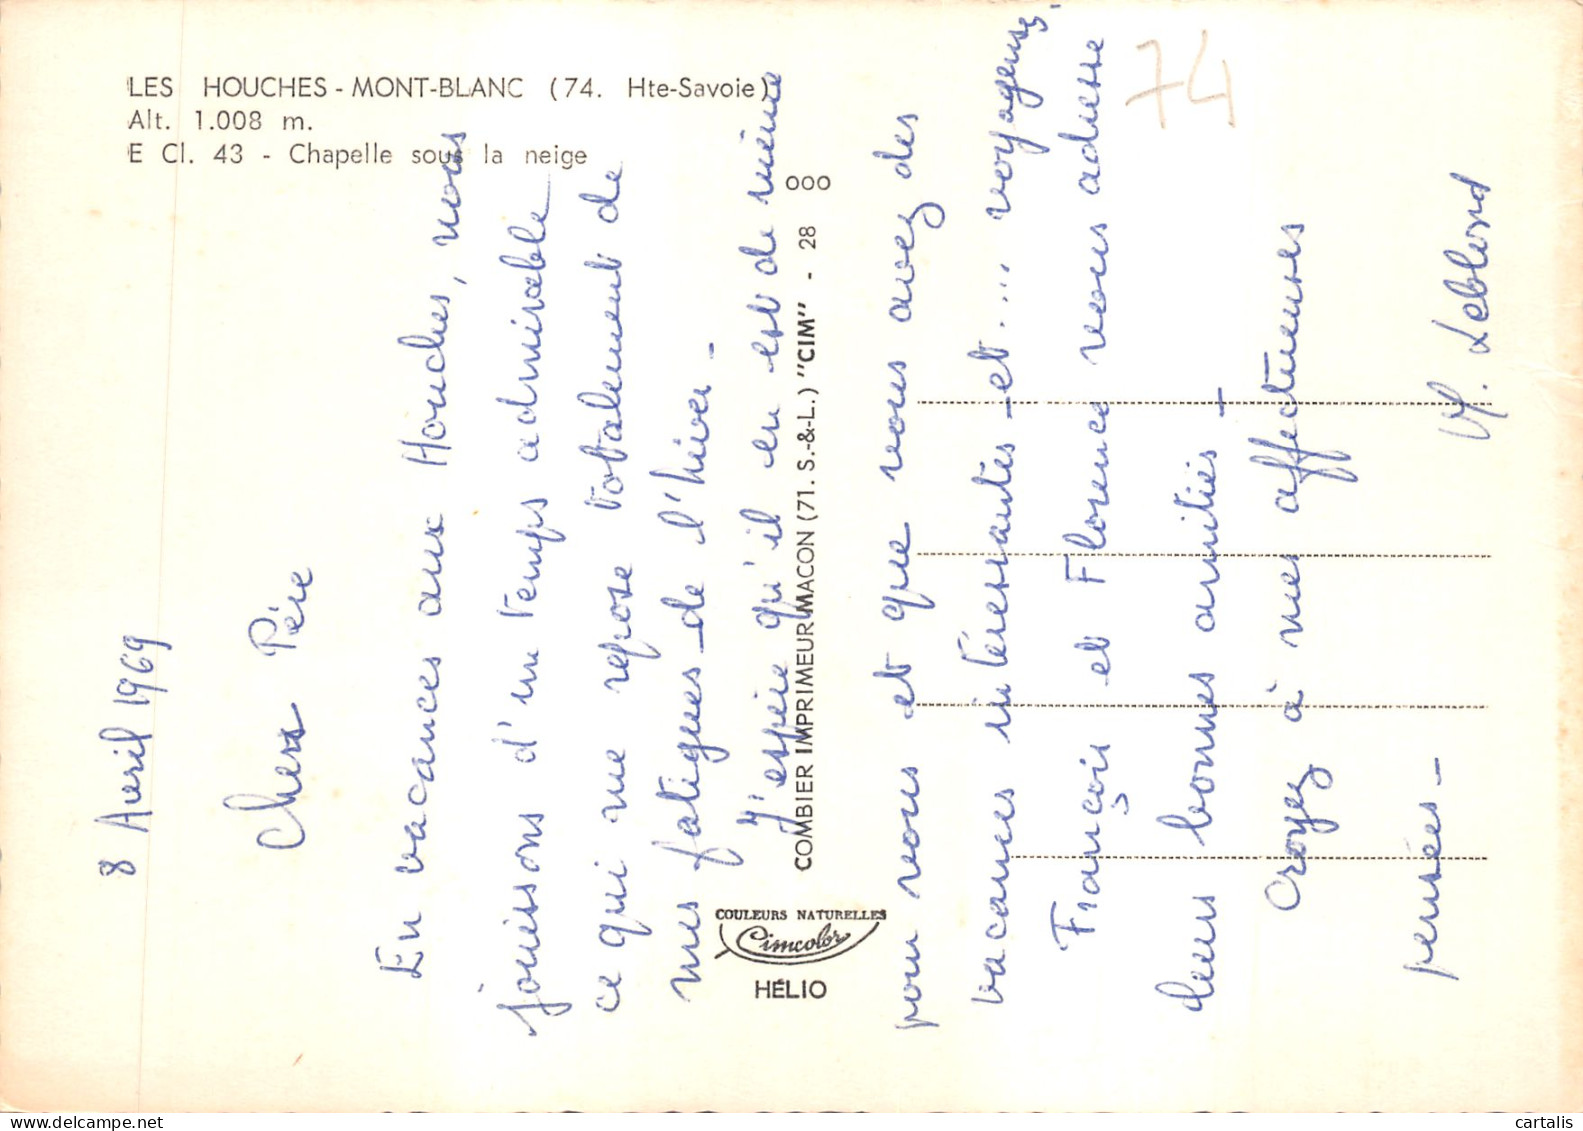 LES HOUCHES - MONT-BLANC (74. Hte-Savoie)
Alt. 1.008 m.
E Cl. 43 - Chapelle sous la neige
74
8 Avril 1969
Cher Père
En vacances aux Houches, nous
jouissons d'un temps admirable
ce qui me repose totalement de
mes fatigues de l'hiver -
J'espère qu'il en est de même
pour vous et que vous avez des
vacances intéressantes - et... voyageuses.
François et Florence vous adresse
leurs bonnes amitiés -
Croyez à mes affectueuses
pensées -
M. Leblond
COMBIER IMPRIMEUR MACON (71. S.-&-L.) "CIM" - 28 000
COULEURS NATURELLES
Cimcolor
HÉLIO
cartalis